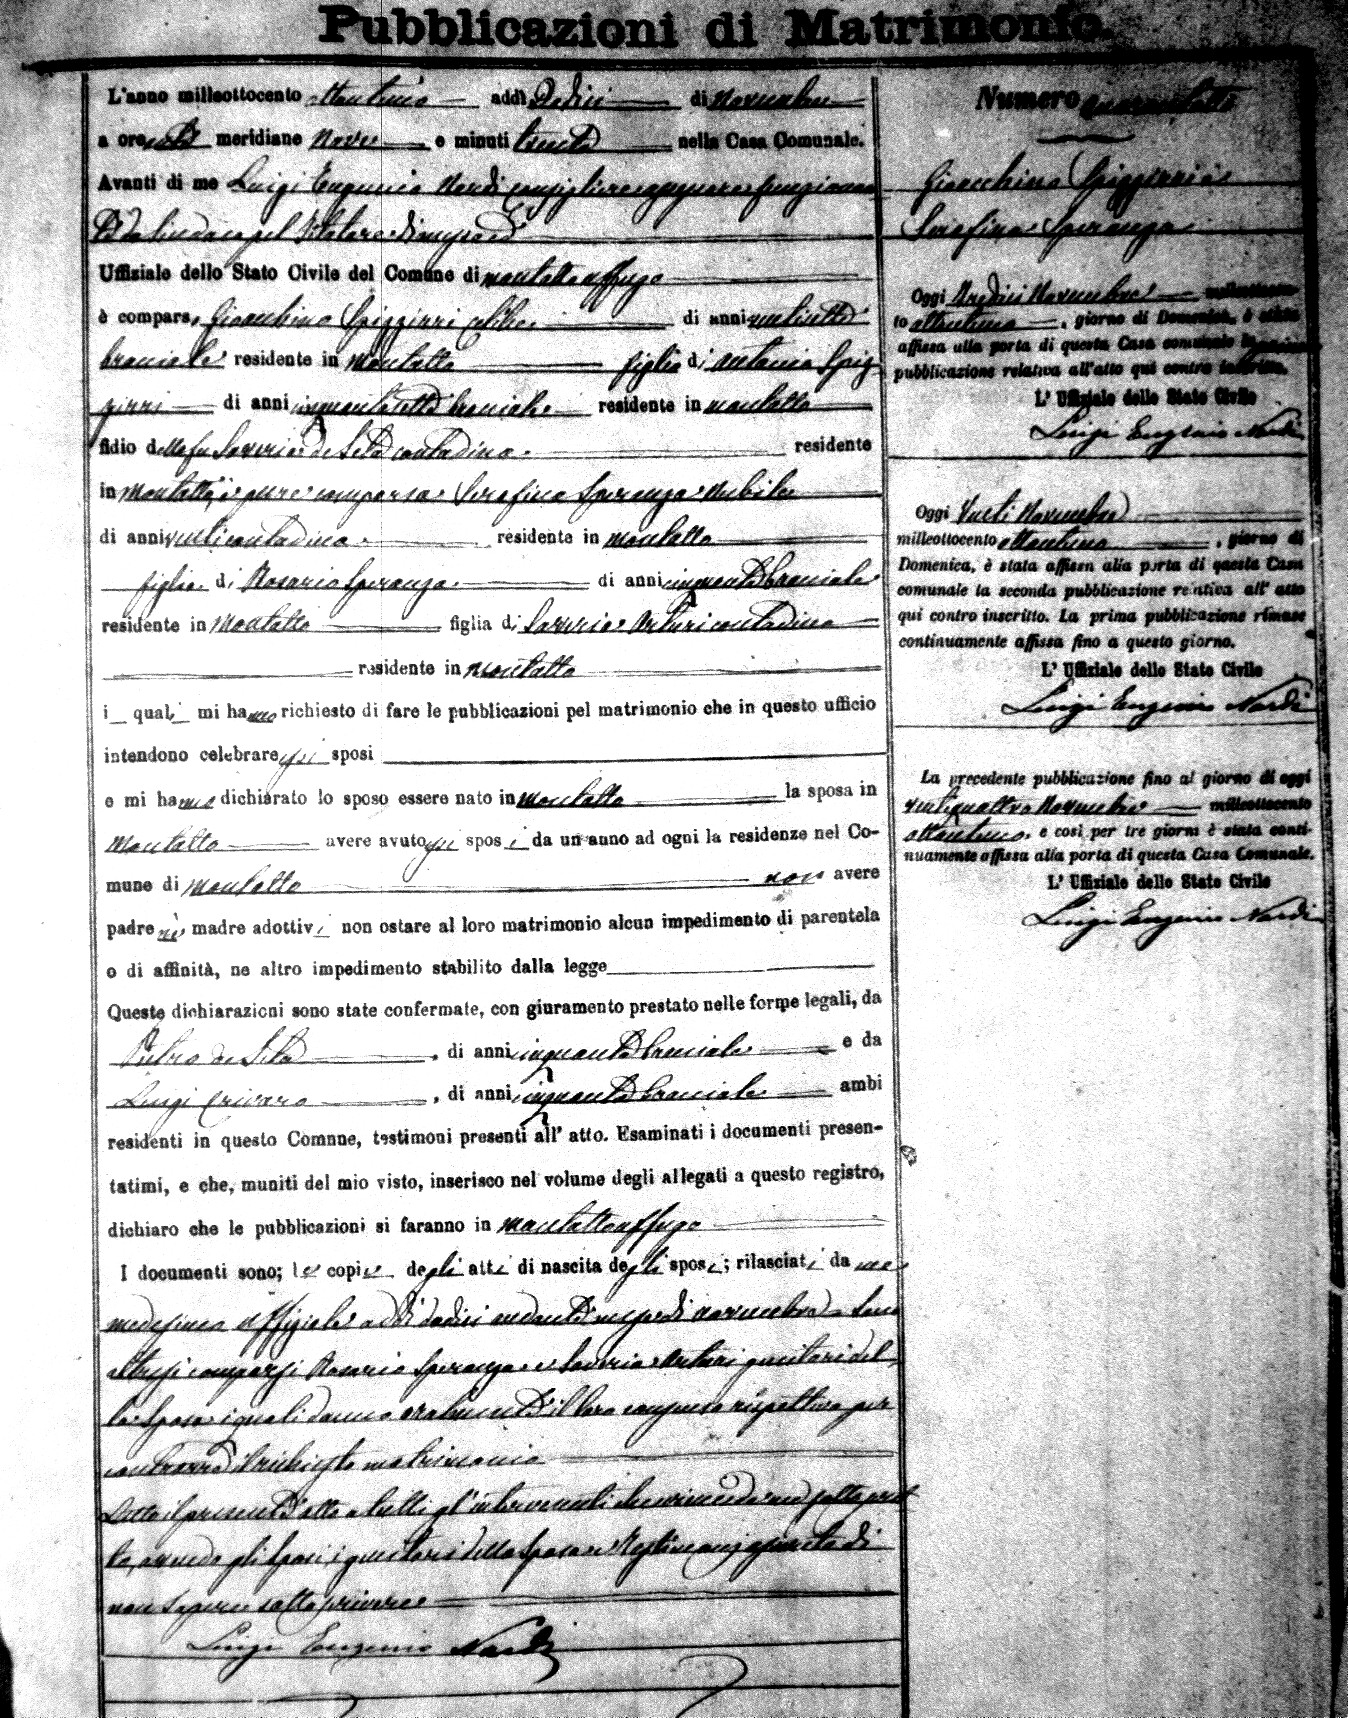 Pubblicazioni di Matrimonio.
L'anno milleottocento ottantuno addì dodici di Novembre
a ore meridiane nove e minuti trenta nella Casa Comunale.
Avanti di me Luigi Eugenio Nardi consigliere funzionan
te da Sindaco pel titolare
Uffiziale dello Stato Civile del Comune di Montalto Uffugo
è compars. Gioacchino Spizzirri celibe di anni ventisette
bracciale residente in Montalto figlio di Antonio Spiz
zirri di anni cinquantasette bracciale residente in Montalto
e della fu Saveria de Seta contadina residente
in Montalto, è pure comparsa Serafina Speranza nubile
di anni venti contadina residente in Montalto
figlia di Rosario Speranza di anni cinquanta bracciale
residente in Montalto figlia di Saveria Arturi contadina
residente in Montalto
i quali mi hanno richiesto di fare le pubblicazioni pel matrimonio che in questo ufficio
intendono celebrare essi sposi
e mi hanno dichiarato lo sposo essere nato in Montalto la sposa in
Montalto avere avuto essi sposi da un anno ad ogni la residenze nel Co-
mune di Montalto non avere
padre nè madre adottivi non ostare al loro matrimonio alcun impedimento di parentela
o di affinità, ne altro impedimento stabilito dalla legge
Queste dichiarazioni sono state confermate, con giuramento prestato nelle forme legali, da
Pietro de Seta, di anni cinquanta bracciale e da
Luigi Crivaro, di anni cinquanta bracciale ambi
residenti in questo Comune, testimoni presenti all' atto. Esaminati i documenti presen-
tatimi, e che, muniti del mio visto, inserisco nel volume degli allegati a questo registro,
dichiaro che le pubblicazioni si faranno in Montalto Uffugo
I documenti sono; le copie degli atti di nascita degli sposi; rilasciati da me
medesimo uffiziale addì dodici andante mese di novembre. Sono
altresì comparsi Rosario Speranza e Saveria Arturi genitori del-
la sposa i quali danno oralmente il loro consenso rispettivo per
contrarre il richiesto matrimonio
Letto il presente atto a tutti gl'intervenuti
gli sposi, i genitori della sposa e testimoni di
non sapere sottoscrivere
Luigi Eugenio Nardi
Numero quarantotto
Gioacchino Spizzirri e
Serafina Speranza
Oggi tredici Novembre milleottocen-
to ottantuno, giorno di Domenica, è stata
affissa alla porta di questa Casa comunale la prima
pubblicazione relativa all'atto qui contro inscritto.
L' Uffiziale dello Stato Civile
Luigi Eugenio Nardi
Oggi Venti Novembre
milleottocento ottantuno, giorno di
Domenica, è stata affissa alla porta di questa Casa
comunale la seconda pubblicazione relativa all' atto
qui contro inscritto. La prima pubblicazione rimase
continuamente affissa fino a questo giorno.
L' Uffiziale dello Stato Civile
Luigi Eugenio Nardi
La precedente pubblicazione fino al giorno di oggi
ventiquattro Novembre milleottocento
ottantuno, e così per tre giorni è stata conti-
nuamente affissa alla porta di questa Casa Comunale.
L' Uffiziale dello Stato Civile
Luigi Eugenio Nardi